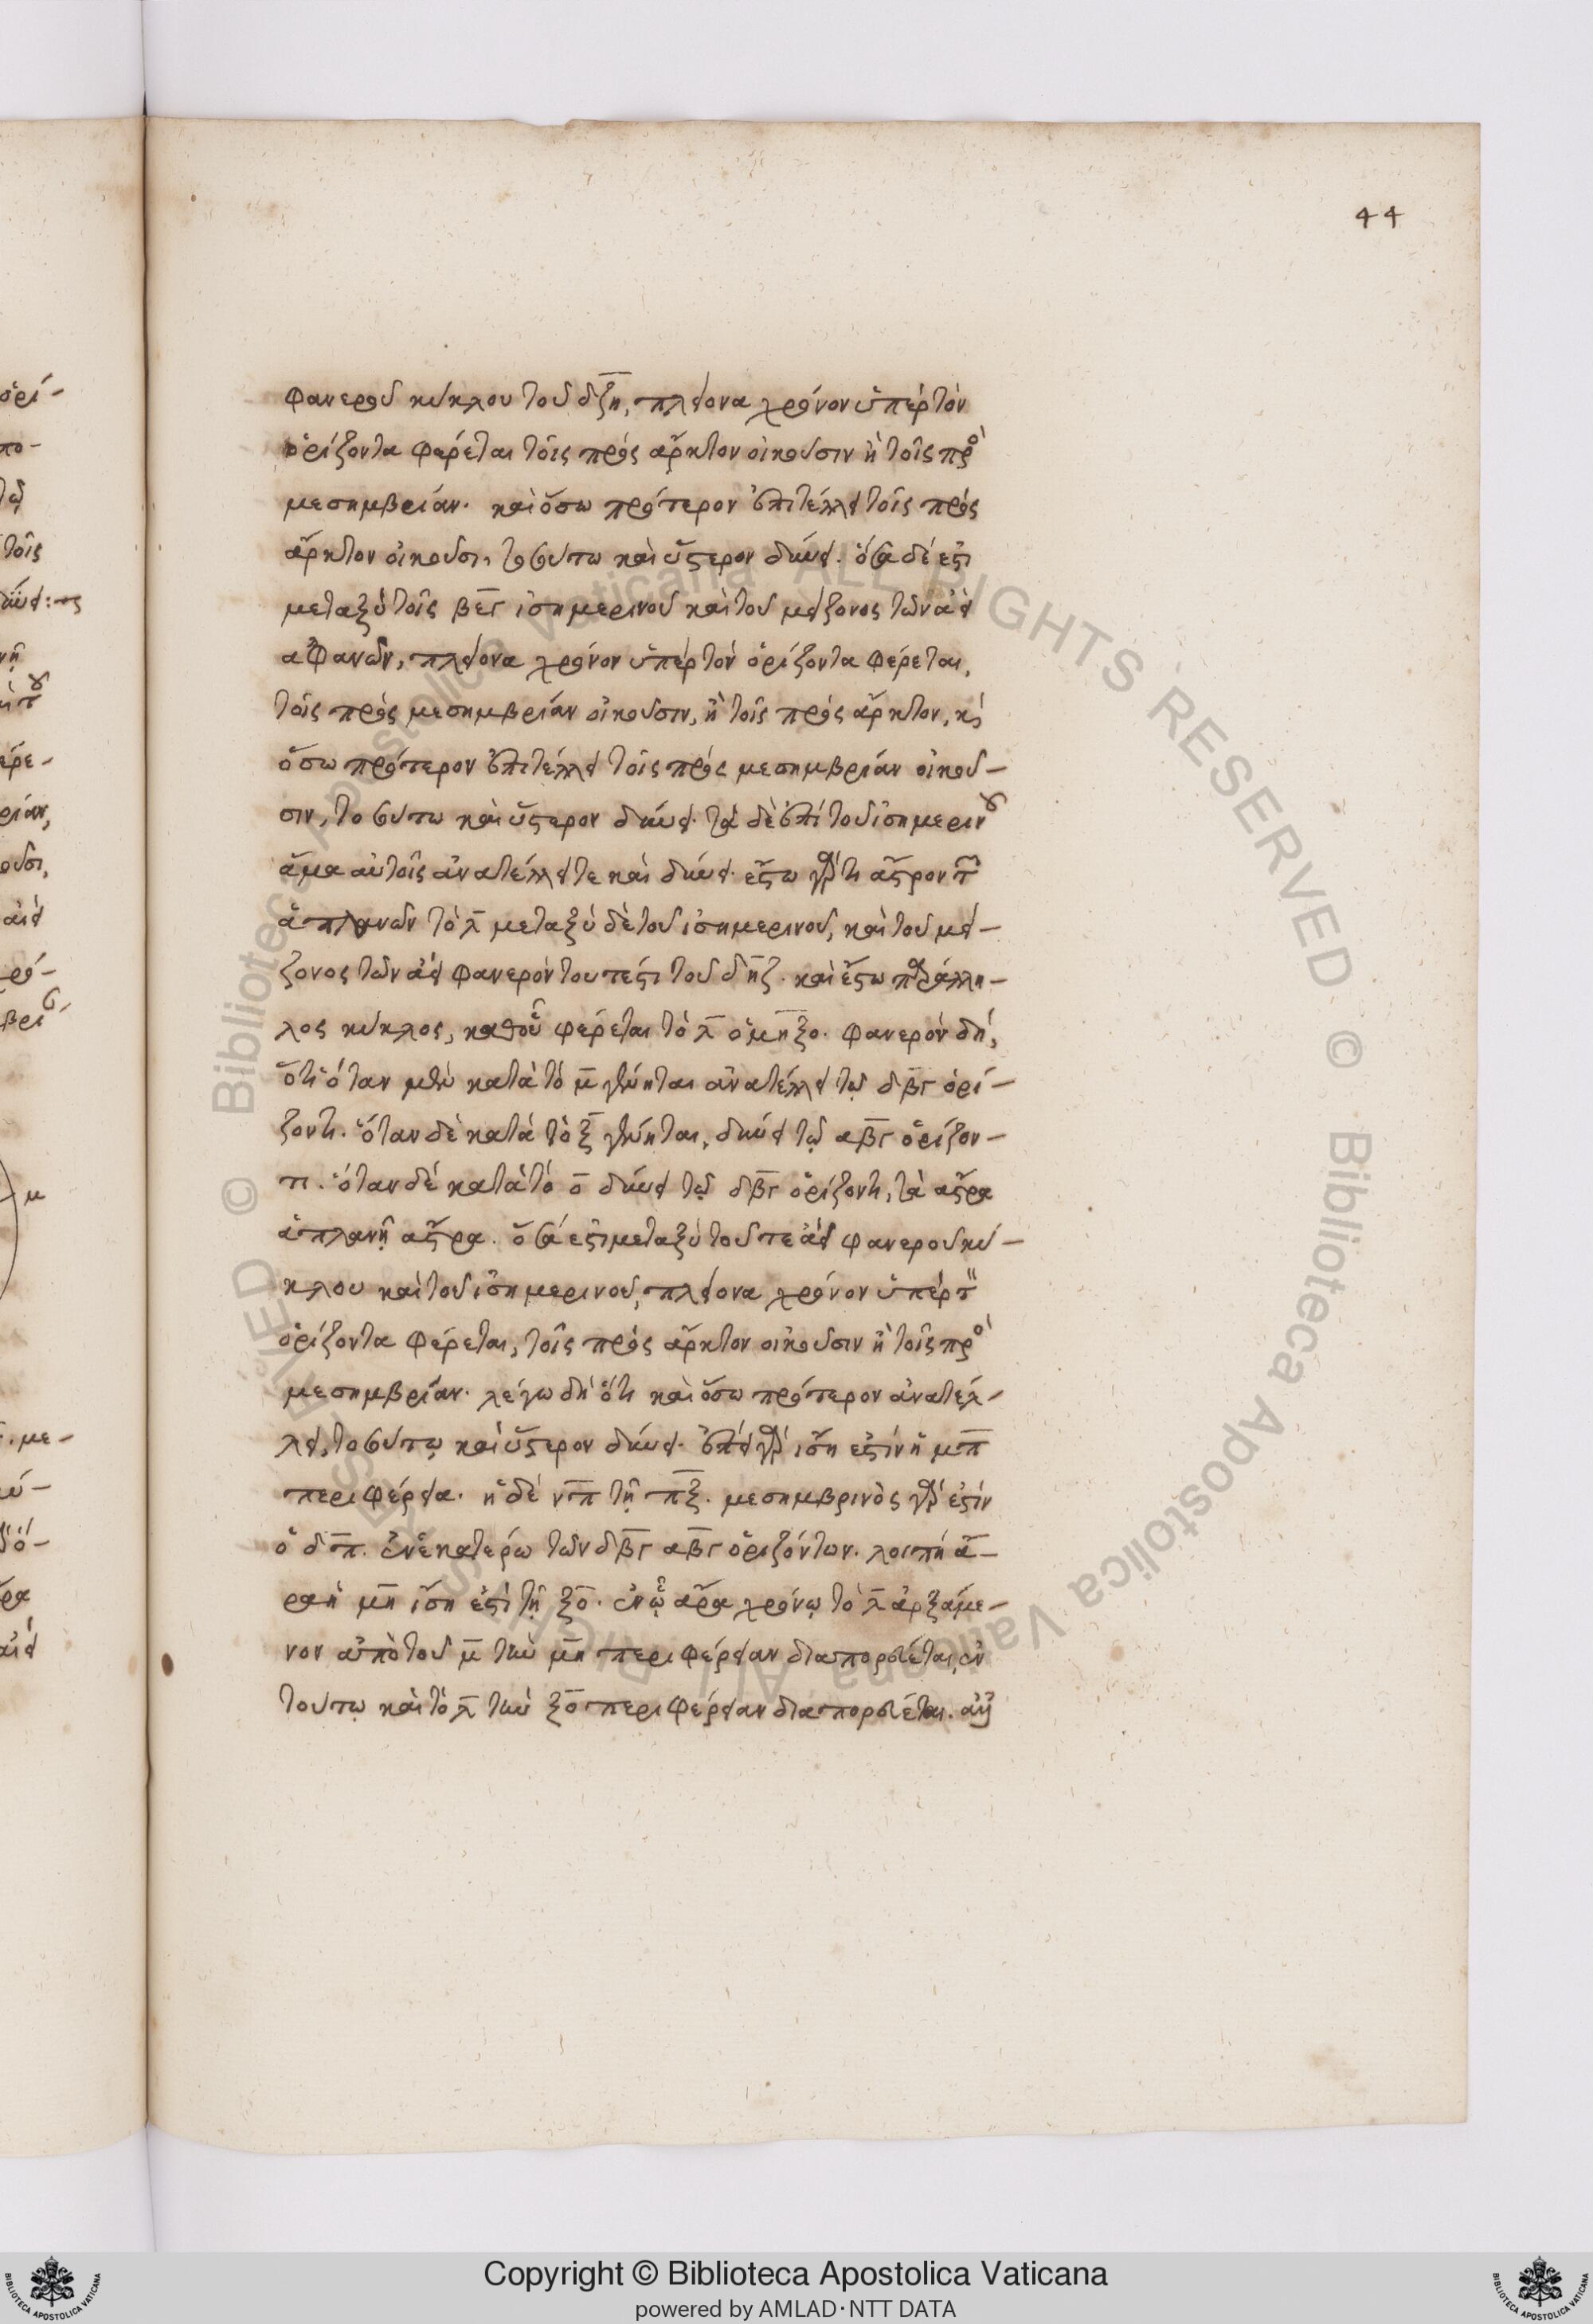 44
φανεροῦ κύκλου τοῦ δζη, πλείονα χρόνον ὑπὲρ τὸν
ὁρίζοντα φέρεται τοῖς πρὸς ἄρκτον οἰκοῦσιν ἢ τοῖς πρὸ
μεσημβρίαν. καὶ ὅσω πρότερον ἐπιτέλλει τοῖς πρὸς
ἄρκτον οἰκοῦσι, τοσούτω καὶ ὕστερον δύνει. ὅσα δέ ἐστι
μεταξὺ τοῖς βεγ ἰσημερινοῦ καὶ τοῦ μείζονος τῶν ἀεὶ
ἀφανῶν, πλείονα χρόνον ὑπὲρ τὸν ὁρίζοντα φέρεται,
τοῖς πρὸς μεσημβρίαν οἰκοῦσιν, ἢ τοῖς πρὸς ἄρκτον, κὶ
ὅσω πρότερον ἐπιτέλλει τοῖς πρὸς μεσημβρίαν οἰκοῦ-
σιν, τοσούτω καὶ ὕστερον δύνει. τὰ δὲ ἐπὶ τοῦ ἰσημερινου
ἅμα αὐτοῖς ἀνατέλλει τε καὶ δύνει. ἔστω γάρ τι ἄστρον τῶν
ἀπλανῶν τὸ λ μεταξὺ δὲ τοῦ ἰσημερινοῦ, καὶ τοῦ μεί-
ζονος τῶν ἀεὶ φανερὸν τουτέστι τοῦ δηζ. καὶ ἔστω παράλλη-
λος κύκλος, καθ' οὗ φέρεται τὸ λ ὁ μηξο. φανερὸν δή,
ὅτι ὅταν μὲν κατὰ τὸ μ γένηται ἀνατέλλει τῷ δβγ ὁρί-
ζοντι. ὅταν δὲ κατὰ τὸ ξ γένηται, δύνει τῷ αβγ ὁρίζον-
τι. ὅταν δὲ κατὰ τὸ ο δύνει τῷ δβγ ὁρίζοντι, τὰ ἄστρα
ἀπλανῆ ἄστρα. ὅσα ἐστι μεταξὺ τοῦ τε ἀεὶ φανεροῦ κύ-
κλου καὶ τοῦ ἰσημερινοῦ, πλείονα χρόνον ὑπὲρ τ
ὁρίζοντα φέρεται, τοῖς πρὸς ἄρκτον οἰκοῦσιν ἢ τοῖς πρὸ
μεσημβρίαν. λέγω δὴ ὅτι καὶ ὅσω πρότερον ἀνατέλ-
λει, τοσούτῳ καὶ ὕστερον δύνει. ἐπεὶ γὰρ ἴση ἐστὶν ἡ μπ
περιφέρεια. ἡ δὲ νπ τῇ πξ. μεσημβρινὸς γάρ ἐστιν
ὁ δπ. ἐν ἑκατέρω τῶν δβγ αβγ ὁριζόντων. λοιπὴ ἄ-
ρα ἡ μη ἴση ἐστὶ τῇ ξο. ἐν ᾧ ἄρα χρόνῳ τὸ λ ἀρξάμε-
νον ἀπὸ τοῦ μ τὴν μη περιφέρειαν διαπορεύεται, ἐν
τούτῳ καὶ τὸ λ τὴν ξο περιφέρειαν διαπορεύεται.
Copyright © Biblioteca Apostolica Vaticana
powered by AMLAD·NTT DATA